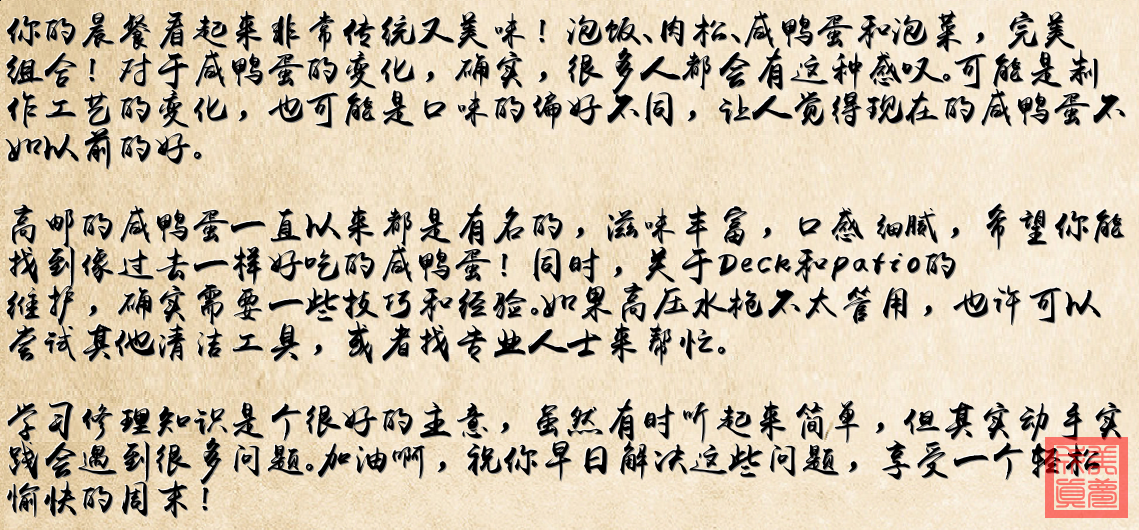 你的晨餐看起来非常传统又美味！泡饭、肉松、咸鸭蛋和泡菜，完美
组合！对于咸鸭蛋的变化，确实，很多人都会有这种感叹。可能是制
作工艺的变化，也可能是口味的偏好不同，让人觉得现在的咸鸭蛋不
如以前的好。
高邮的咸鸭蛋一直以来都是有名的，滋味丰富，口感细腻，希望你能
找到像过去一样好吃的咸鸭蛋！同时，关于Deck和patio的
维护，确实需要一些技巧和经验。如果高压水枪不太管用，也许可以
尝试其他清洁工具，或者找专业人士来帮忙。
学习修理知识是个很好的主意，虽然有时听起来简单，但其实动手实
践会遇到很多问题。加油啊，祝你早日解决这些问题，享受一个轻松
愉快的周末！